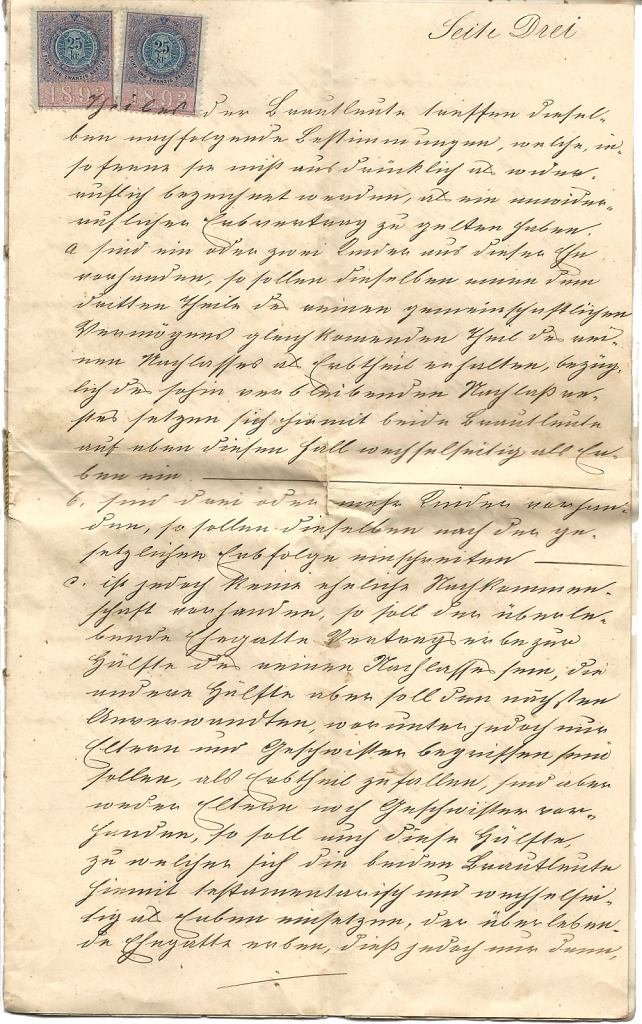 Seite Drei
25 kr. 25 kr.
1893 1893
Theiles der Brautleute treffen diesel-
ben nachfolgende Bestimmungen, welche, in-
soferne sie nicht ausdrücklich als wider-
ruflich bezeichnet werden, als ein unwider-
ruflicher Erbvertrag zu gelten haben.
a sind ein oder zwei Kinder aus dieser Ehe
vorhanden, so sollen dieselben einen dem
dritten Theile des reinen gemeinschaftlichen
Vermögens gleichkomenden Theil des rei-
nen Nachlasses als Erbtheil erhalten, bezüg-
lich des sohin verbleibenden Nachlaßre-
stes setzen sich hiemit beide Brautleute
auf eben diesen Fall wechselseitig als Er-
ben ein
b. sind drei oder mehr Kinder vorhan-
den, so sollen dieselben nach der ge-
setzlichen Erbfolge einschreiten
c. ist jedoch keine eheliche Nachkommen-
schaft vorhanden, so soll der überle-
bende Ehegatte Vertragserbe zur
Hälfte des reinen Nachlasses sein, die
andere Hälfte aber soll den nächsten
Anverwandten, worunter jedoch nur
Eltern und Geschwister begriffen sein
sollen, als Erbtheil zufallen, sind aber
weder Eltern noch Geschwister vor-
handen, so soll auch diese Hälfte,
zu welcher sich die beiden Brautleute
hiemit testamentarisch und wechselsei-
tig als Erben einsetzen, der überleben-
de Ehegatte erben, dieß jedoch nur dann,